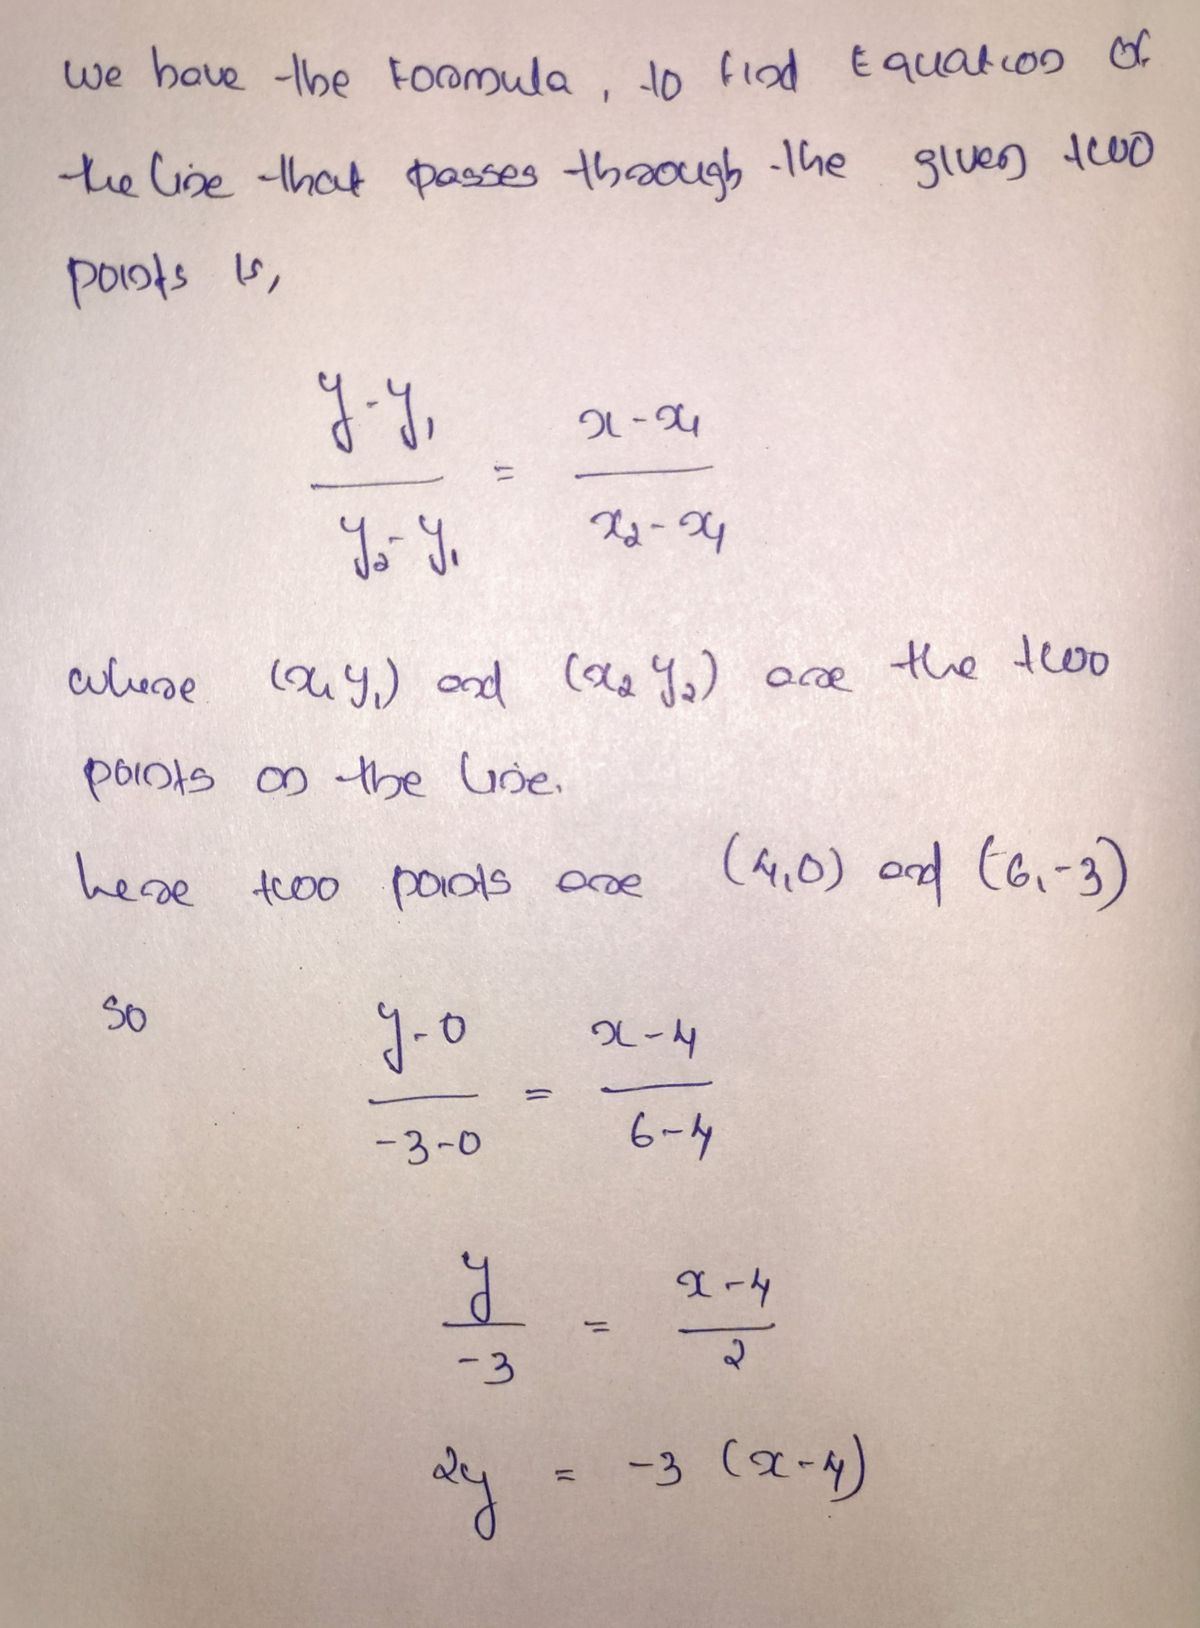 We have the Formula, to find Equation of
the line that passes through the given two
points is,
y-y₁ / y₂-y₁ = x-x₁ / x₂-x₁
where (x₁ y₁) and (x₂ y₂) are the two
points on the line.
here two points are (4,0) and (6,-3)
so y-0 / -3-0 = x-4 / 6-4
y / -3 = x-4 / 2
2y = -3 (x-4)